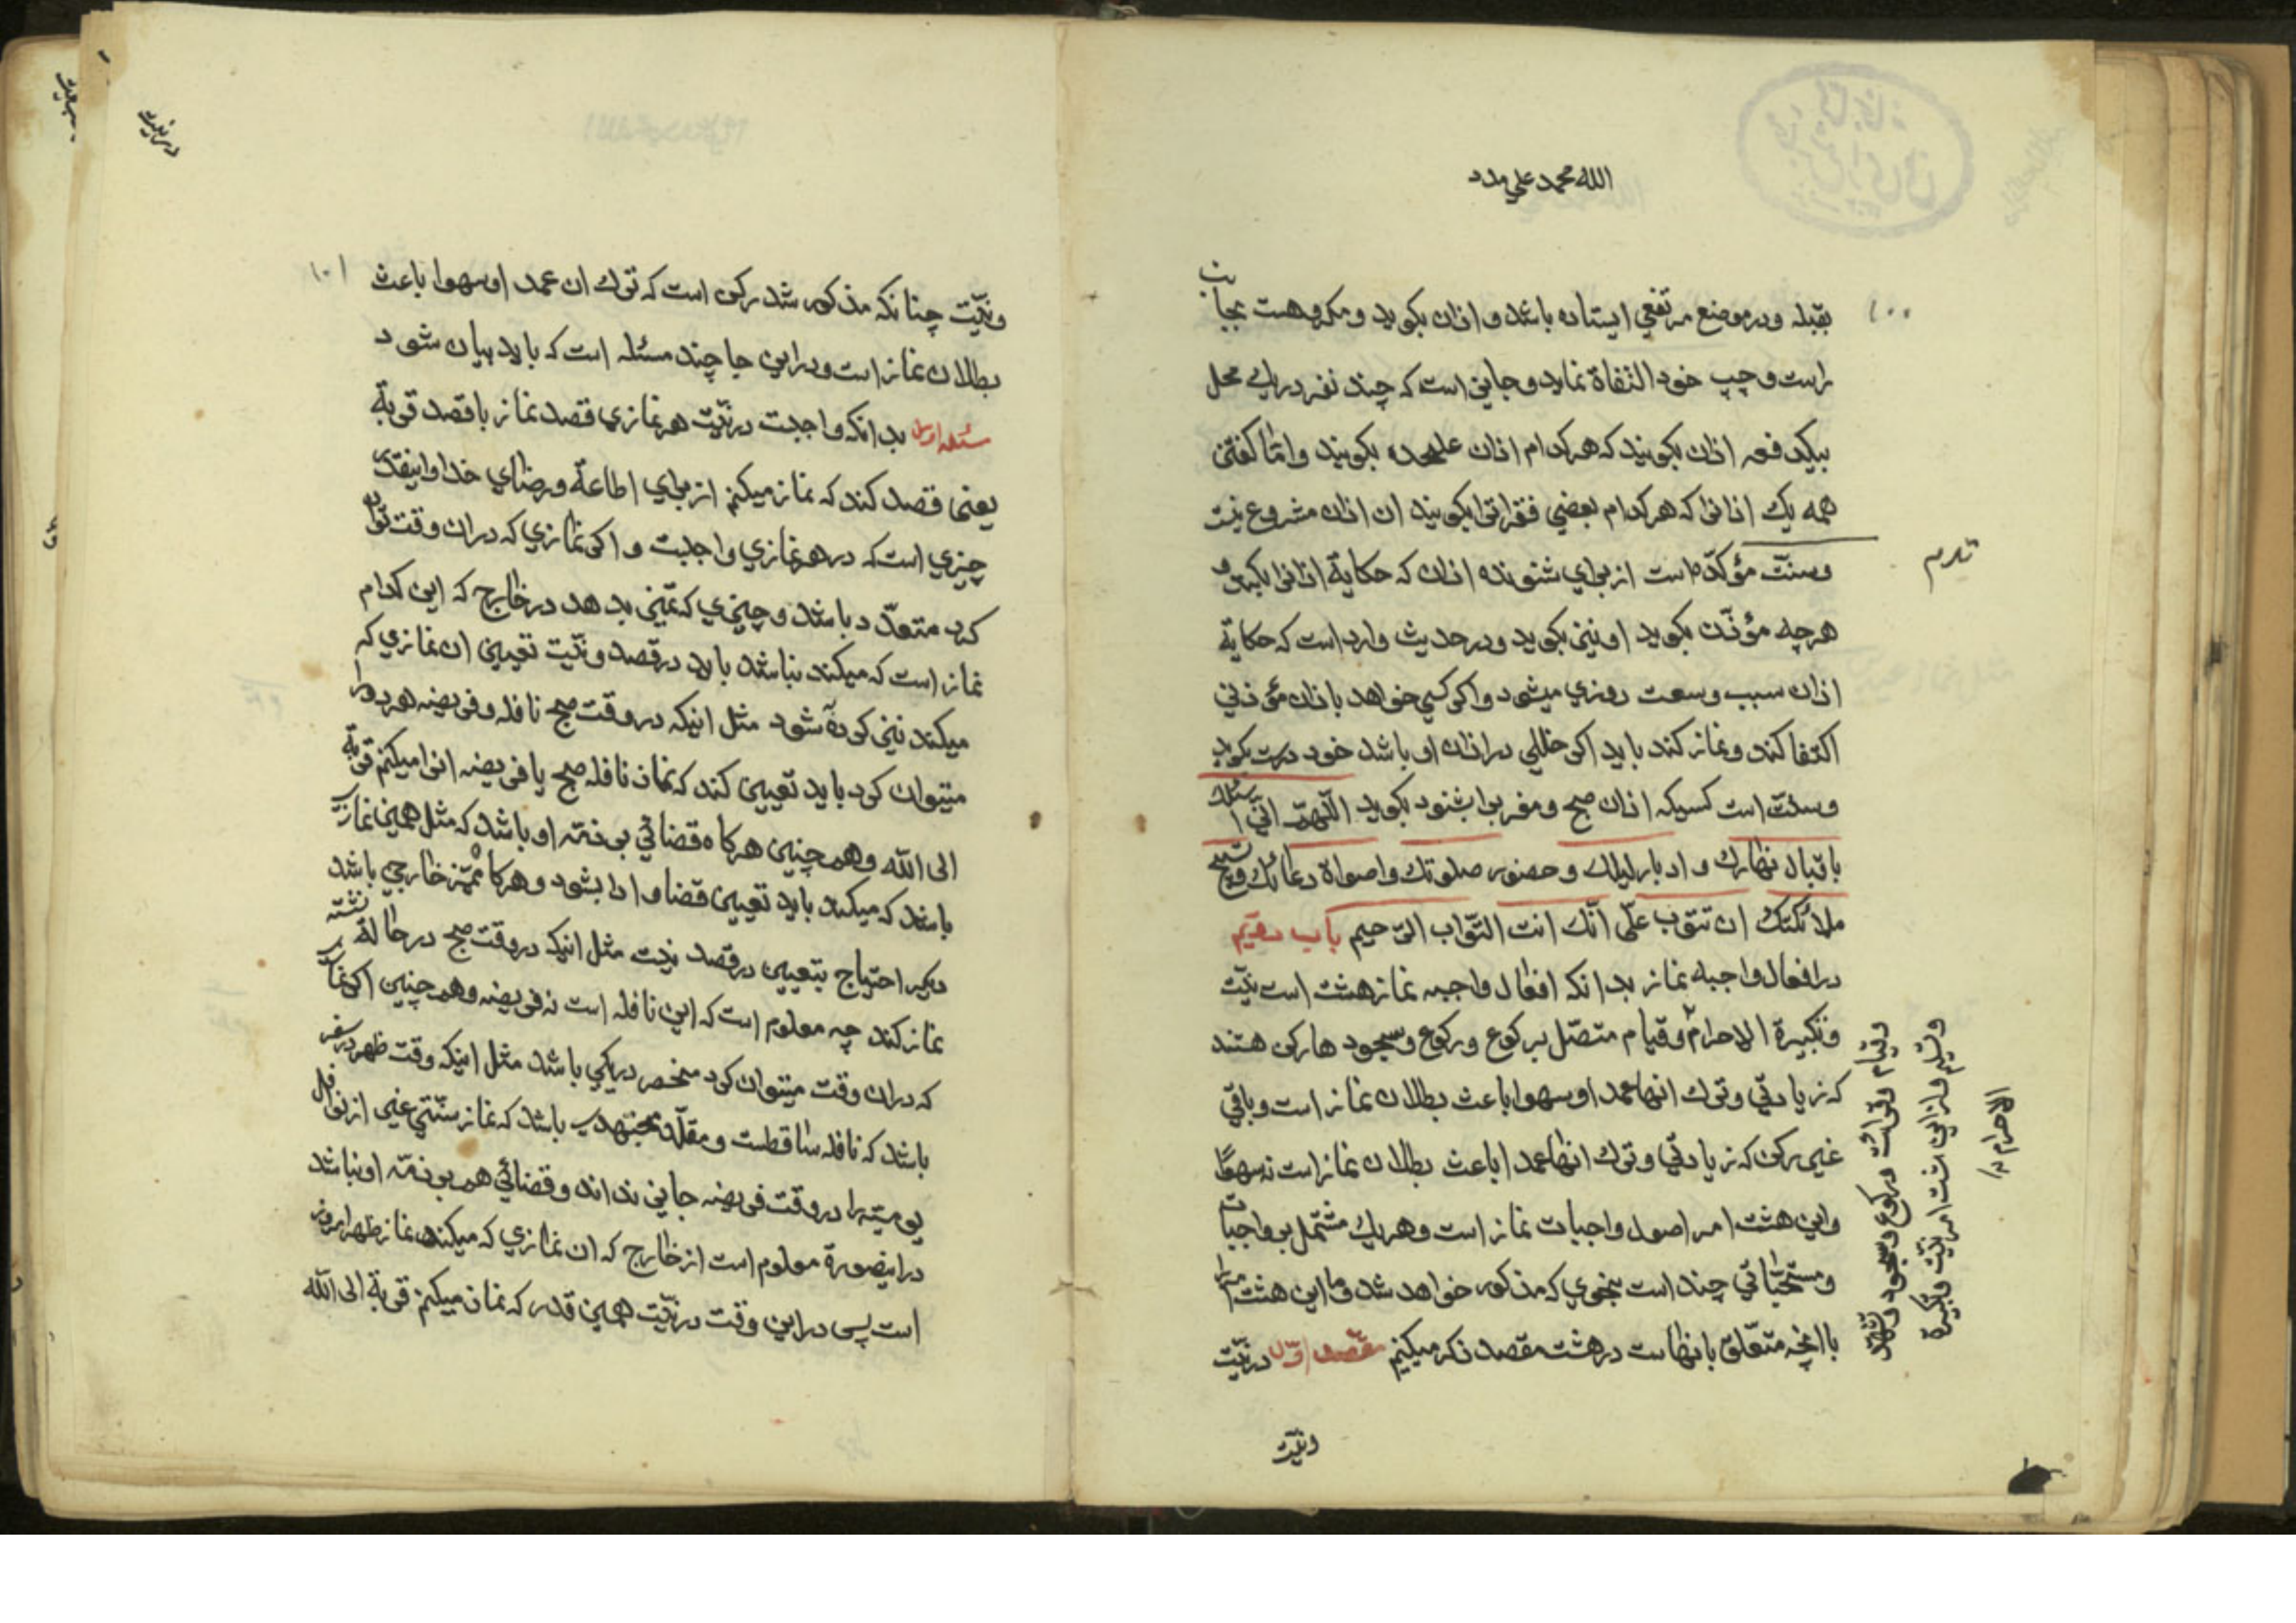 الله محمد علی مدد
۱۰۰
بقبله ودر موضع مرتفعی ایستاده باشد و اذان بکوید ومکروهست بجانب
راست وچپ خود التفاة نماید وجایز است که چند نفر در یك محل
بیکدفعه اذان بکویند که هرکدام اذان علیحده بکویند وامّا کفتن
همه یك اذانرا که هرکدام بعضی فقراترا بکویند ان اذان مشروع نیست
وسنّت مؤکّد است از برای شنونده اذان که حکایة اذانرا بکند و
هرچه مؤذّن بکوید او نیز بکوید ودر حدیث وارد است که حکایة
اذان سبب وسعت روزی میشود واکر کسی خواهد باذان مؤذنی
اکتفا کند ونماز کند باید اکر خللی در اذان او باشد خود درست بکوید
وسنّت است کسیکه اذان صبح ومغرب را بشنود بکوید اللّهمّ انّی اسئلك
باقبال نهارك و ادبار لیلك وحضور صلوتك واصواة دعائك وتسبیح
ملائکتك ان تتوب علّی انّك انت التّواب الرّحیم باب دهیم
در افعال واجبه نماز بدانکه افعال واجبه نماز هشت است نیّت
وتکبیرة الاحرام وقیام متصّل برکوع ورکوع وسجود هارکن هستند
که زیادتی وترك انها عمدا وسهوا باعث بطلان نماز است وباقی
غیر رکن که زیادتی وترك انها عمدا باعث بطلان نماز است نه سهوًا
واین هشت امر اصول واجبات نماز است وهریك مشتمل بر واجبات
ومستحبّاتی چند است بنحوی که مذکور خواهد شد وما این هشت امر را
با انچه متعّلق بانهاست در هشت مقصد ذکر میکنیم مقصد اوّل در نیّت
وقیام وقرائت ورکوع وسجود وتشهّد
الاحرام
ونیّت
در نیّت
۱۰۱
ونیّت چنانکه مذکور شد رکن است که ترك ان عمدا وسهوا باعث
بطلان نماز است ودر این جا چند مسئله است که باید بیان شود
مسئله اول بدانکه واجبست در نیّت هر نمازی قصد نماز با قصد قربة
یعنی قصد کند که نماز میکنم از برای اطاعة ورضای خدا واینقدر
چیزی است که در هر نمازی واجبست و اکر نمازی که در ان وقت توان
کرد متعدّد باشد و چیزی که تمیز بدهد در خارج که این کدام
نماز است که میکند نباشد باید در قصد ونیّت تعیین ان نمازی که
میکند نیز کرده شود مثل اینکه در وقت صبح نافله وفریضه هر دو را
میتوان کرد باید تعیین کند که نماز نافله صبح یا فریضه انرا میکنم قربة
الی الله وهمچنین هرکاه قضائی بر ذمّه او باشد که مثل همین نماز
باشد که میکند باید تعیین قضا وادا بشود وهرکاه ممیّز خارجی باشد
دیکر احتیاج بتعیین در قصد نیست مثل اینکه در وقت صبح در حالة نشسته
نماز کند چه معلوم است که این نافله است نه فریضه وهمچنین اکر نمازی
که در ان وقت میتوان کرد منحصر در یکی باشد مثل اینکه وقت ظهر در سفر
باشد که نافله ساقطست ومقلّد مجتهدی باشد که نماز سنّتی غیر از نوافل
یومیّه را در وقت فریضه جایز نداند وقضائی هم بر ذمّه او نباشد
در اینصورة معلوم است از خارج که ان نمازی که میکند نماز ظهر امروز
است پس در این وقت در نیّت همین قدر که نماز میکنم قربة الی الله